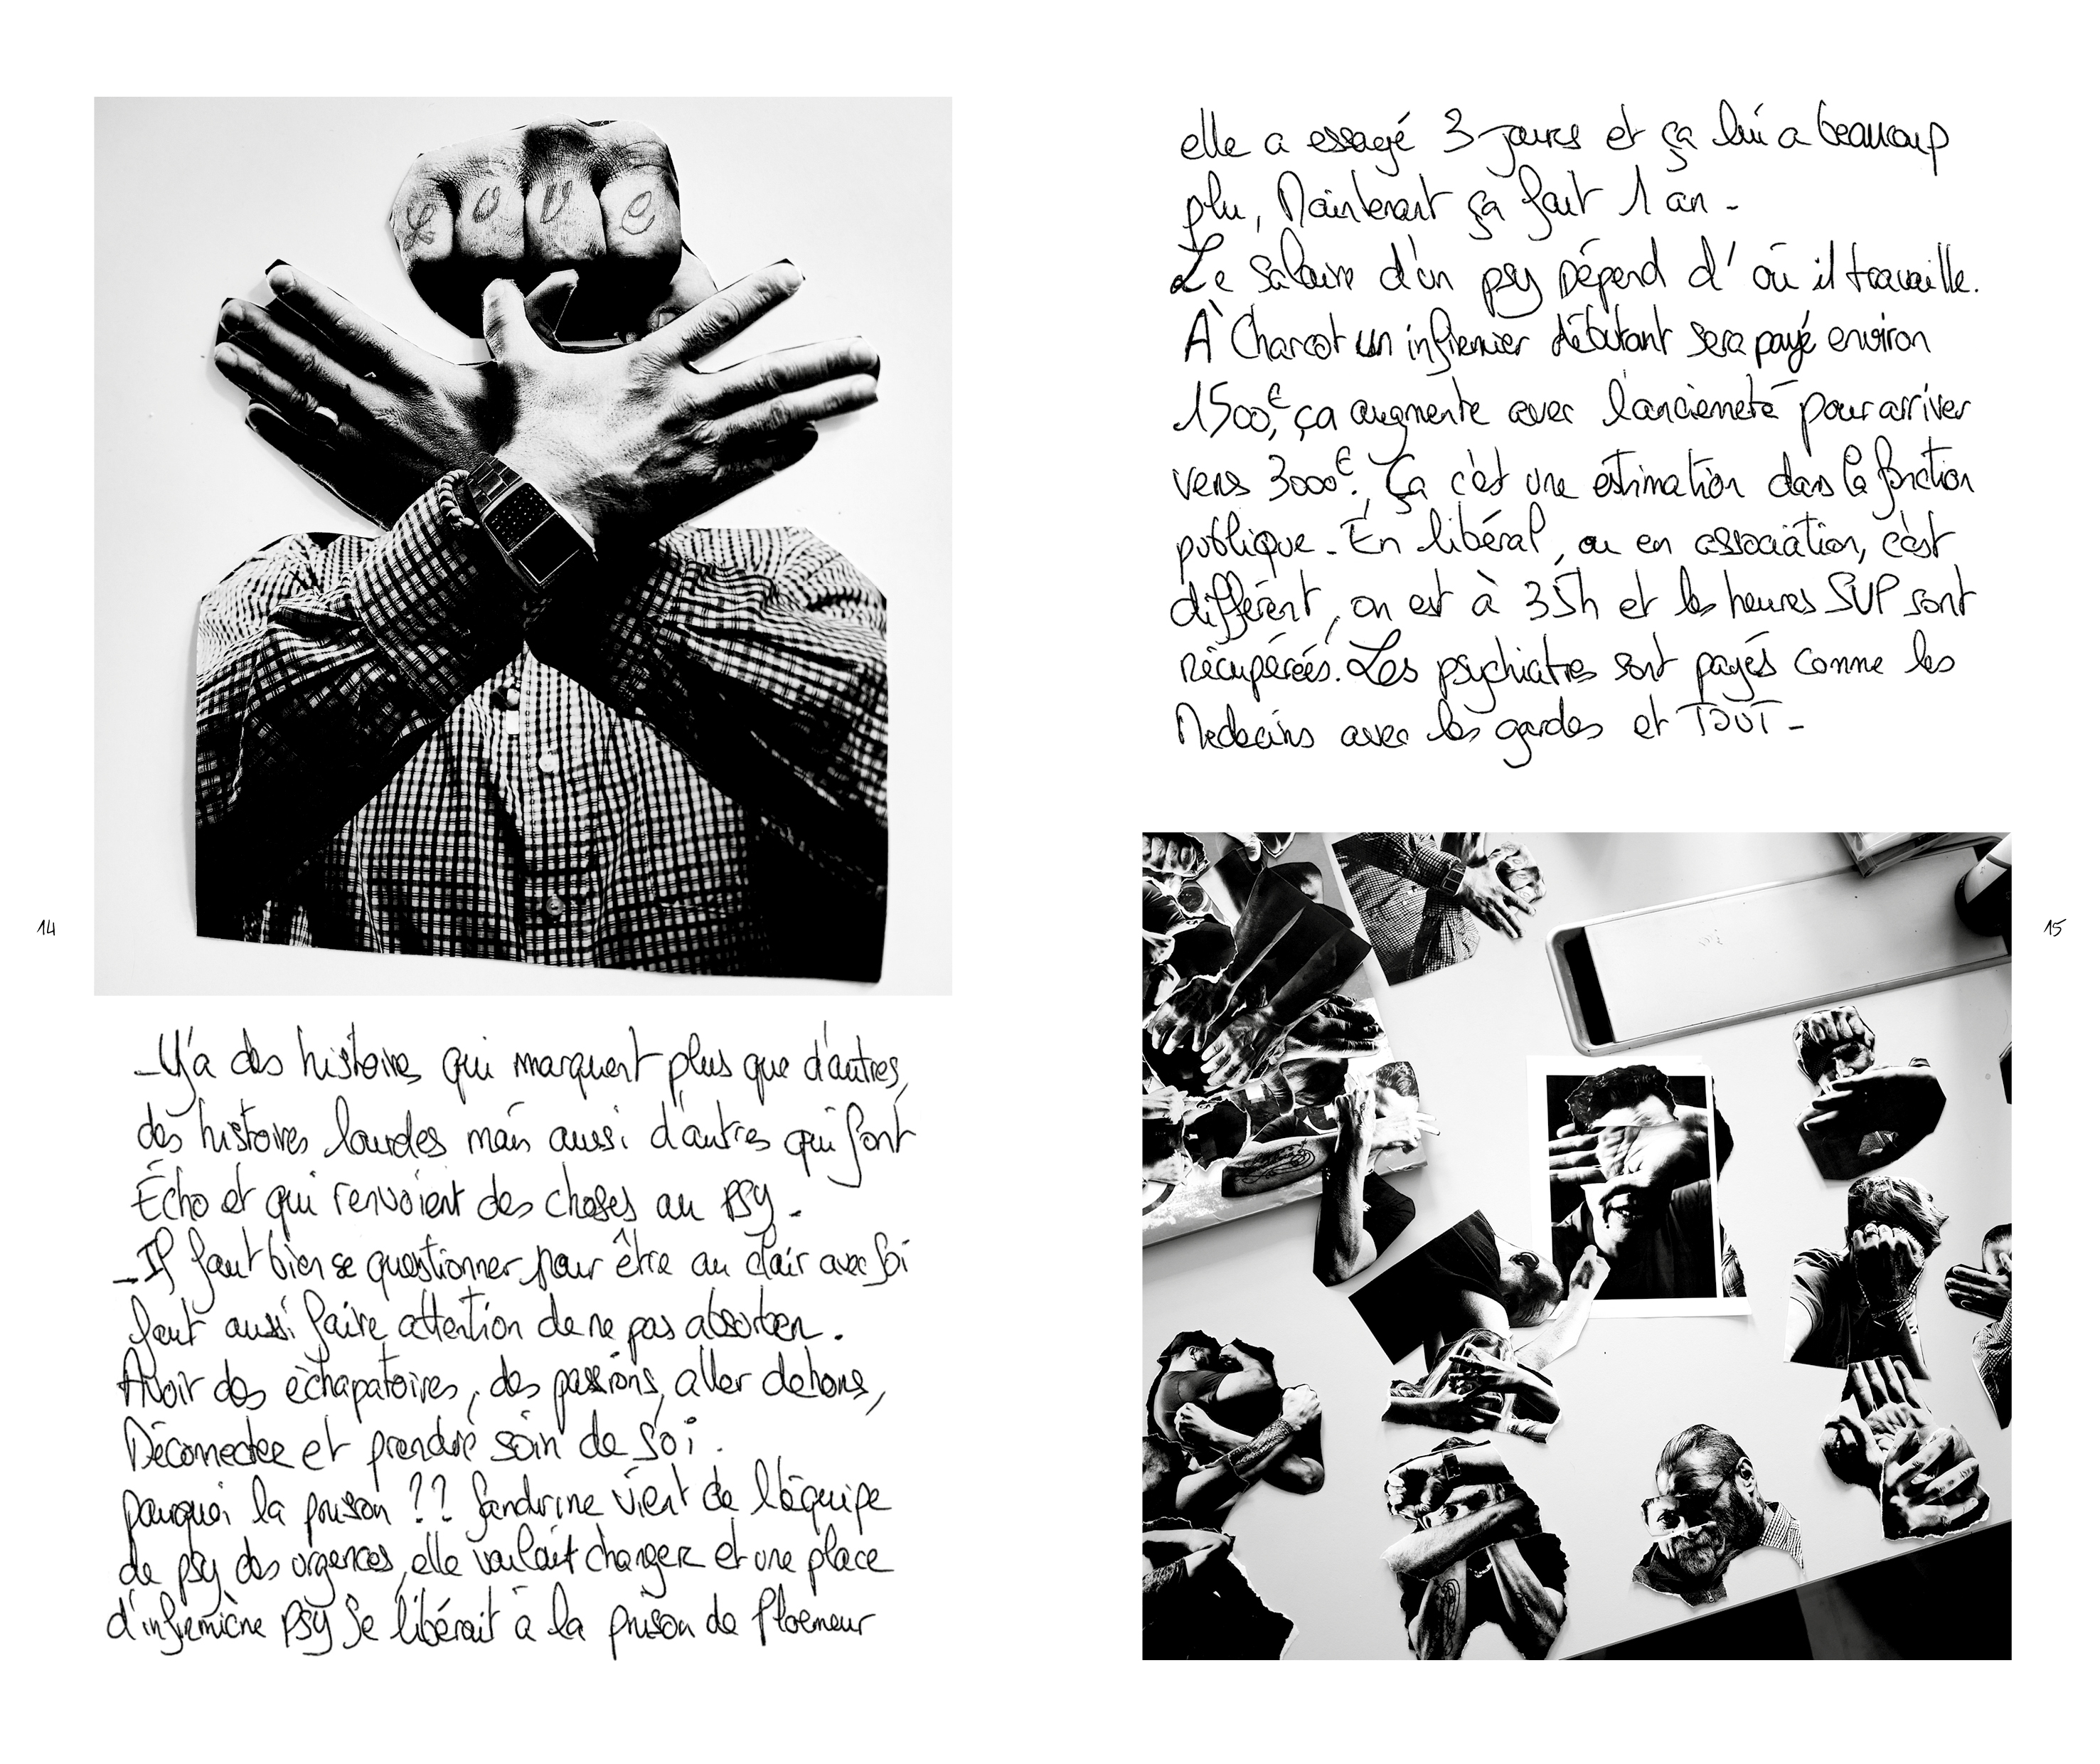 Love
14
_Y'a des histoires qui marquent plus que d'autres,
des histoires lourdes mais aussi d'autres qui font
Écho et qui renvoient des choses au PSY.
_Il faut bien se questionner pour être au clair avec soi
faut aussi faire attention de ne pas absorber.
Avoir des échapatoires, des passions, aller dehors,
Déconnecter et prendre soin de soi.
pourquoi la prison ?? Sandrine vient de l'équipe
de psy des urgences, elle voulait changer et une place
d'infirmière PSY se libérait à la prison de Ploemeur
elle a essayé 3 jours et ça lui a beaucoup
plu, Maintenant ça fait 1 an -
Le salaire d'un psy Dépend d'où il travaille.
À Charcot un infirmier débutant sera payé environ
1500€, ça augmente avec l'ancienneté pour arriver
vers 3000€. Ça c'est une estimation dans la fonction
publique. En libéral, ou en association, c'est
différent, on est à 35h et les heures SUP sont
récupérées. Les psychiatres sont payés comme les
Medecins avec les gardes et TOUT -
15